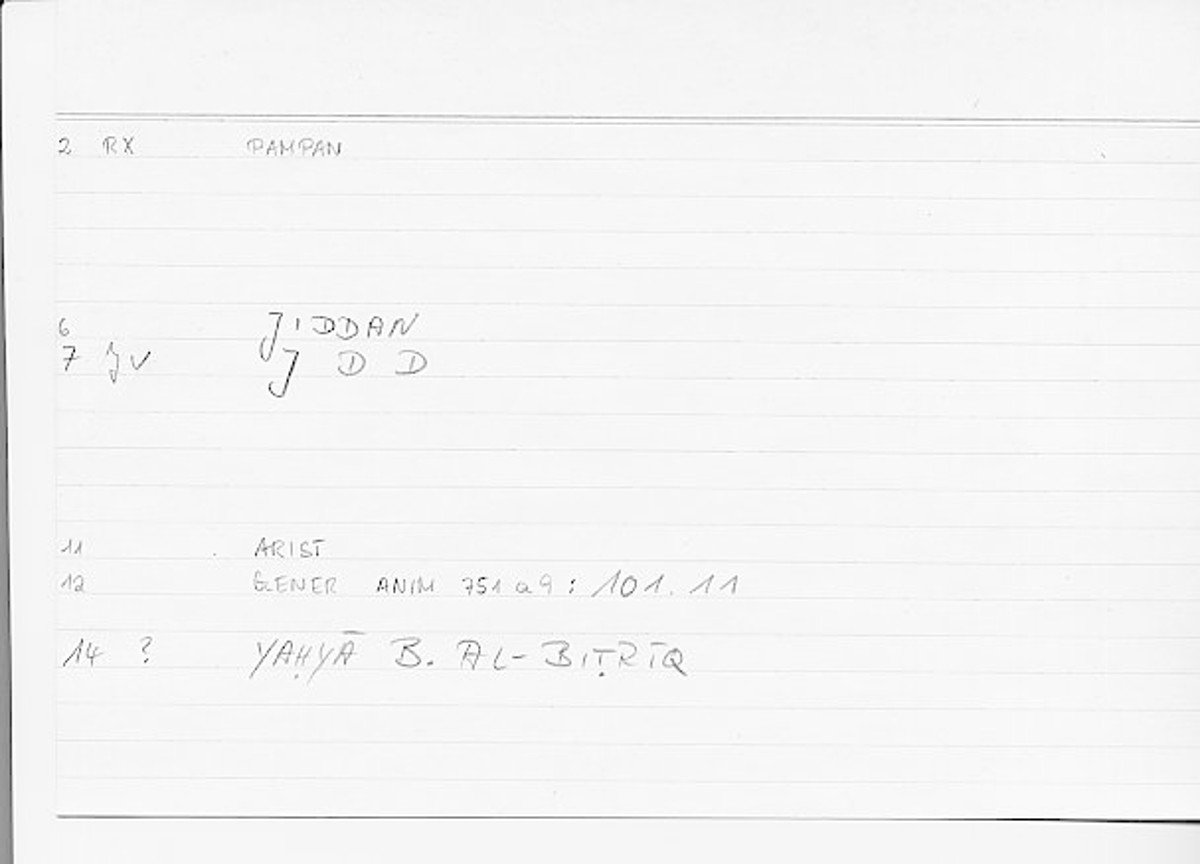 2 RX PAMPAN
6 JIDDAN
7 JV J D D
11 ARIST
12 GENER ANIM 751 a 9 : 101. 11
14 ? YAḤYĀ B. AL-BIṬRĪQ